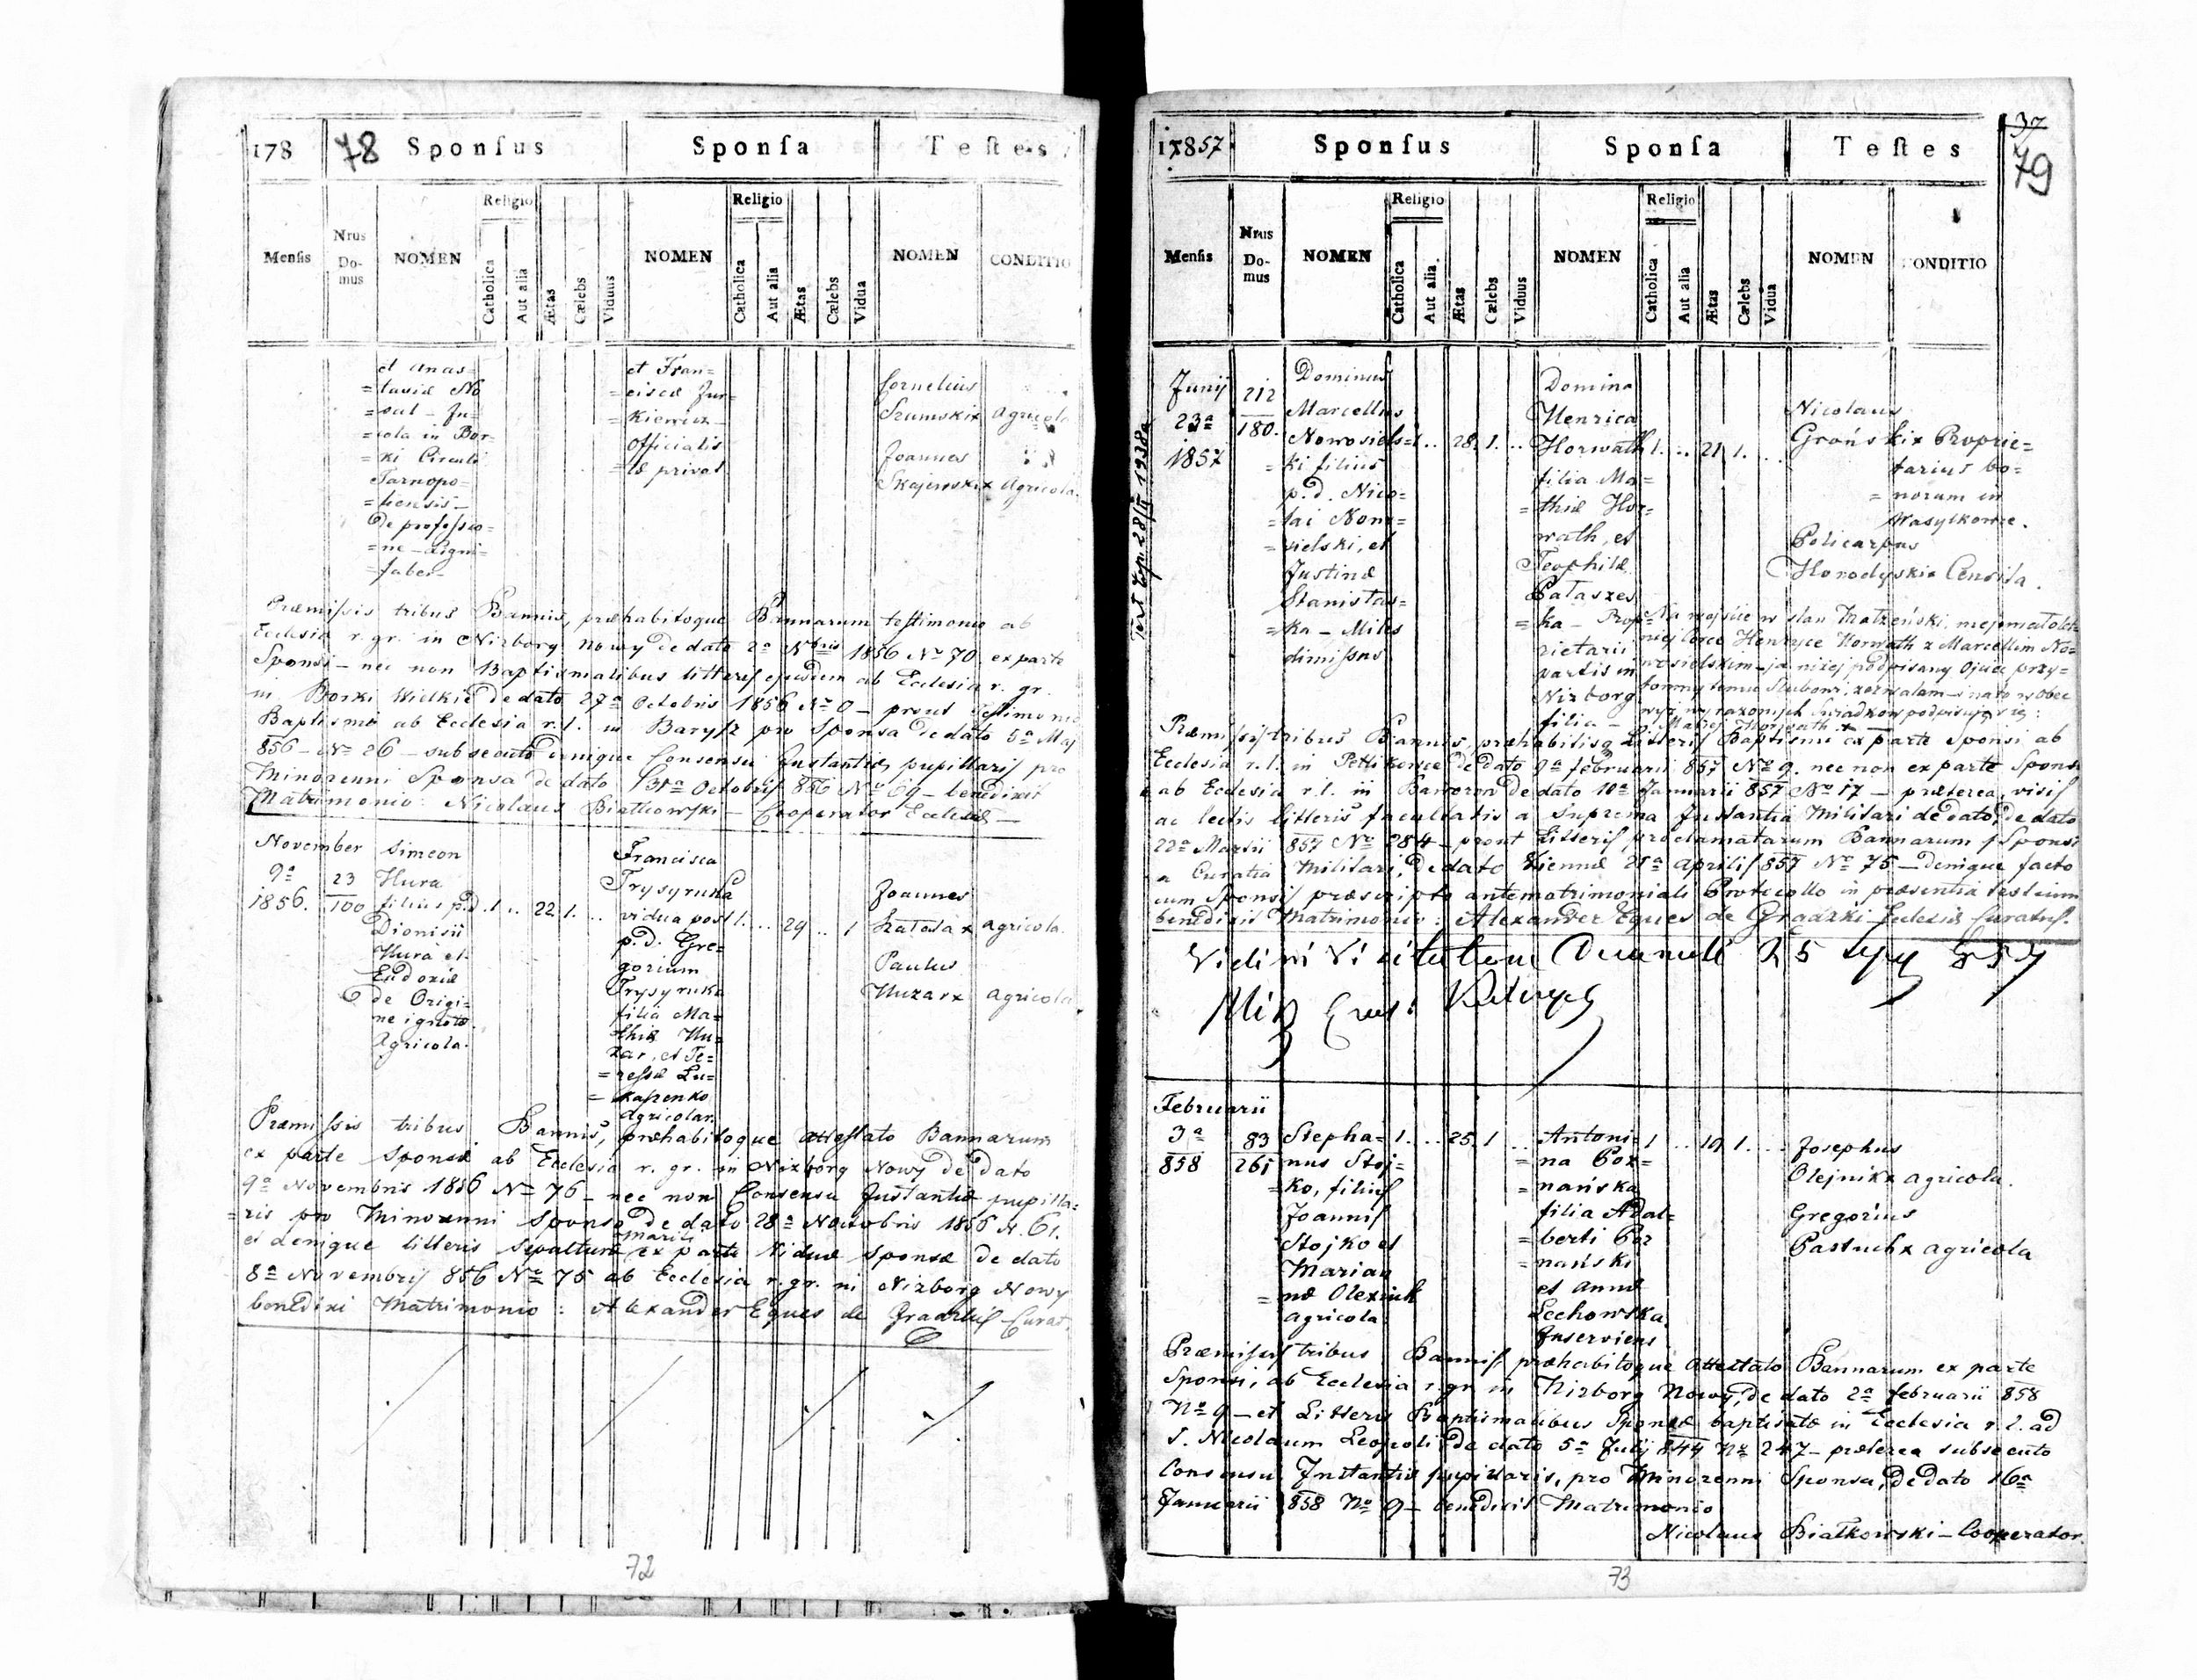 178 78 Sponſus Sponſa Teſtes
Menſis Nrus Do-mus NOMEN Religio Catholica Aut alia Ætas Cælebs Viduus NOMEN Religio Catholica Aut alia Ætas Cælebs Vidua NOMEN CONDITIO
et Anas=
=tasiæ No
=sal – In=
=cola in Bor=
=ki Circuli
Tarnopo=
=liensis –
de profeſsio=
=ne – Ligni=
=faber –
et Fran=
=ciscæ Jur=
=kiewicz –
Officialis
=læ privat
Cornelius
Szumski x Agricola
Joannes
Skajewski x Agricola.
Præmiſsis tribus Bannis, præhabitoque Bannarum teſtimonio ab
Ecclesia r. gr. in Nizborg Nowy de dato 2ª Nbris 1856 Nº 70, ex parte
Sponsi – nec non Baptismalibus litteris ejusdem ab Ecclesia r. gr.
in Borki Wielkie de dato 27ª Octobris 1856 Nº 0 – prout Teſtimonio
Baptismi ab Ecclesia r. l. in Barysz pro Sponsa de dato 5ª Maj
856 – Nº 26 – subsecuto denique Consensu Instantiæ pupillaris pro
Minorenni Sponsa de dato 31ª Octobris 856 Nº 69 – benedixit
Matrimonio: Nicolaus Białkowski – Cooperator Ecclesiæ –
November
9ª
1856.
23
100
Simeon
Hura
filius p.d. 1 .. 22. 1. ..
Dionisii
Hura et
Eudoxiæ
de Origi=
ne ignotæ.
Agricola.
Francisca
Trysyruka
vidua post 1. .. 29 .. 1
p. d. Gre=
gorium
Trysyruka
filia Ma=
thiæ Hu=
zar, et Te=
=reſsæ Lu=
=kasenko
Agricolar.
Joannes
Załoda x Agricola.
Paulus
Huzar x Agricola
Præmiſsis tribus Bannis, præhabitoque Atteſtato Bannarum
ex parte Sponsæ ab Ecclesia r. gr. in Nizborg Nowy de dato
9ª Novembris 1856 Nº 76 – nec non Consensu Instantiæ pupilla=
=ris pro Minorenni Sponso de dato 28ª Octobris 1856 N. 61.
et denique litteris Sepulturæ mariti ex parte Viduæ Sponsæ de dato
8ª Novembris 856 Nº 75 ab Ecclesia r. gr. in Nizborg Nowy
benedixi Matrimonio: Alexander Eques de Gradzki Curat.
72
1857 Sponſus Sponſa Teſtes 37
79
Menſis Nrus Do-mus NOMEN Religio Catholica Aut alia Ætas Cælebs Viduus NOMEN Religio Catholica Aut alia Ætas Cælebs Vidua NOMEN CONDITIO
Junij
23ª
1857
212
180.
Dominus
Marcellus
Nowosiels= 1 .. 28. 1. ..
=ki filius
p. d. Nico=
=lai Nowo=
=sielski, et
Justinæ
Stanislas=
=ka – Miles
dimiſsus
Domina
Henrica
Horwath 1. .. 21 1. ..
filia Ma=
=thiæ Hor=
wath, et
Teophilæ
Pałaszes
=ka – Prop=
rietarii
partis in
Nizborg
filia –
Nicolaus
Groński x Proprie=
tarius bo=
=norum in
Wasylkowce.
Policarpus
Horodyski x Censita.
Na wejście w stan Małżeński, mej małolet=
niej córce Henryce Horwath z Marcellim No=
wosielskim – ja niżej podpisany Ojciec przy=
tomny temu ślubowi, zezwalam – i na to w obec
wyż wyrażonych świadków podpisuję się:
Maciej Horwath +
Præmiſsis tribus Bannis, præhabitisq Litteris Baptismi ex parte Sponsi ab
Ecclesia r. l. in Petlikowce de dato 9ª februarii 857 Nº 9. nec non ex parte Sponsæ
ab Ecclesia r. l. in Baworow de dato 10ª Januarii 857 Nº 17 – præterea visis
ac lectis litteris facultatis a Suprema Instantia Militari de dato, de dato
22ª Martii 857 Nº 284 – prout Litteris proclamatarum Bannarum Sponsi
a Curatia Militari, de dato Viennæ 21ª Aprilis 857 Nº 75 – denique facto
cum Sponsis præscripto antematrimoniali Protocollo in præsentia testium
benedixit Matrimonio: Alexander Eques de Gradzki Ecclesiæ Curatus.
Februarii
3ª
858
83
265
Stepha= 1. .. 25. 1 ..
nus Stoj=
=ko, filius
Joannis
Stojko et
Marian
=næ Olexiuk
Agricola
Antoni= 1 .. 19 1. ..
=na Poz=
=nańska
filia Adal=
=berti Poz
=nański
et Annæ
Lechowska
Inserviens
Josephus
Olejnik x Agricola.
Gregorius
Pastuch x Agricola
Præmiſsis tribus Bannis præhabitoque Attestato Bannarum ex parte
Sponsi, ab Ecclesia r. gr. in Nizborg Nowy, de dato 2ª februarii 858
Nº 9 – et Litteris Baptismalibus Sponsæ baptisatæ in Ecclesia r. l. ad
S. Nicolaum Leopoli de dato 5ª Julij 844 Nº 247 – præterea subsecuto
Consensu Instantiæ pupillaris, pro Minorenni Sponsa, de dato 16ª
Januarii 858 Nº 9 – benedixit Matrimonio
Nicolaus Białkowski – Cooperator.
73